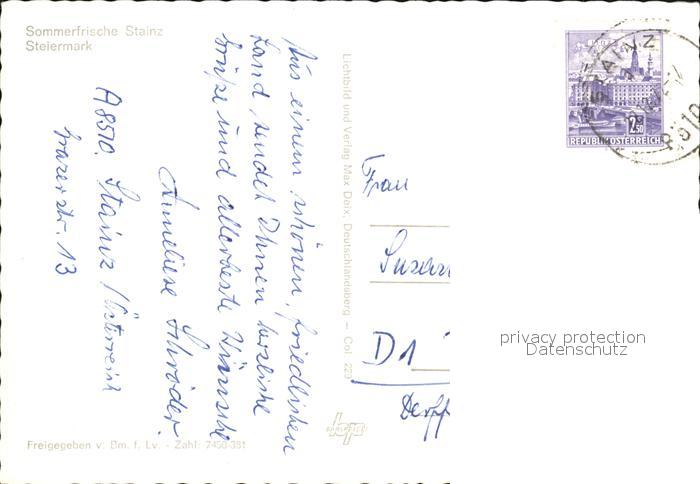 Sommerfrische Stainz
Steiermark
Aus einem schönen, friedlichen
Land sendet Ihnen herzliche
Grüße und allerbeste Wünsche
Anneliese Schröder.
A 8510. Stainz / Österreich
Grazerstr. 13
Freigegeben v. Bm. f. Lv. - Zahl: 7450-381
Lichtbild und Verlag Max Deix, Deutschlandsberg – Col. 223
STAINZ
8510
2.50
REPUBLIK ÖSTERREICH
Frau
D1
privacy protection
Datenschutz